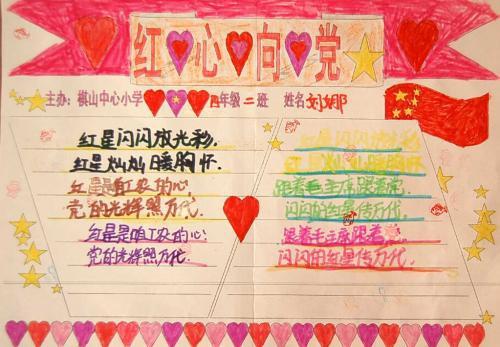 红心向党
主办：棋山中心小学 四年级二班 姓名 刘娜
红星闪闪放光彩，
红星灿灿暖胸怀．
红星是咱工农的心，
党的光辉照万代．
红星是咱工农的心：
党的光辉照万代．
红星闪闪放光彩
红星灿灿暖胸怀
跟着毛主席跟着党．
闪闪的红星传万代．
跟着毛主席跟着党
闪闪的红星传万代．